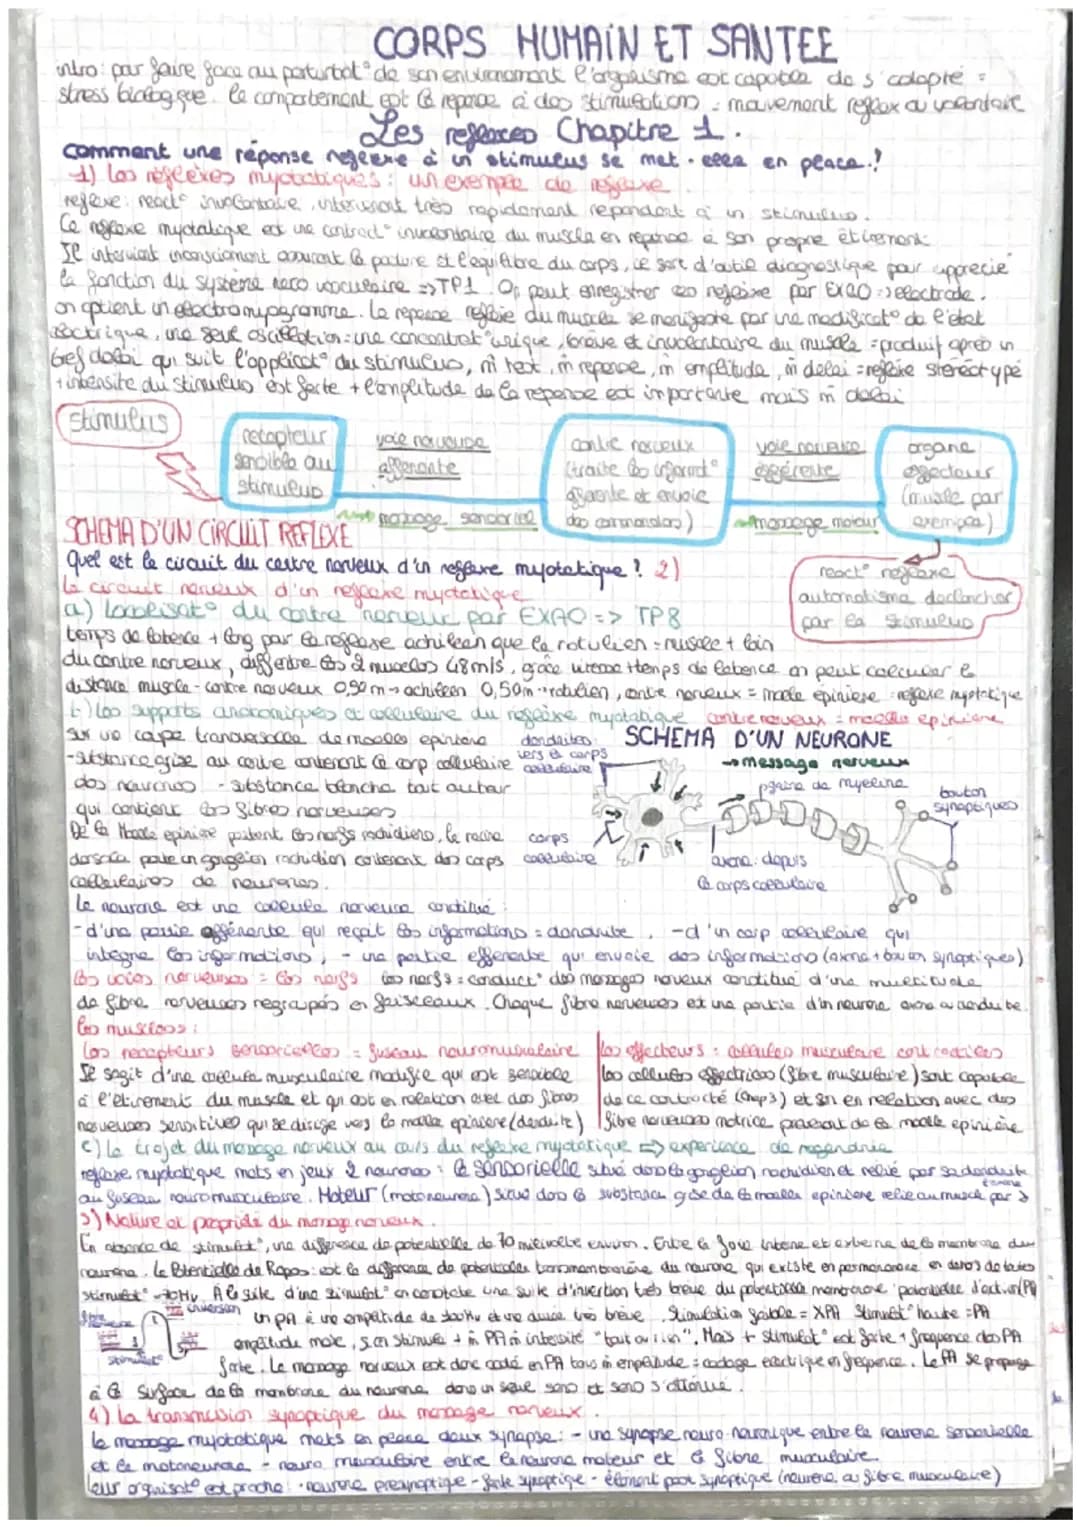 CORPS HUMAIN ET SANTEE
intro : pour faire face au perturbat° de son environnement l'organisme est capable de s'adapté =
stress biologique. le comportement est la réponse à des stimulations = mouvement reflex ou volontaire
Les reflexes Chapitre 1.
comment une réponse reflexe à un stimulus se met-elle en place ?
1) Les réflexes myotatiques : un exemple de reflexe
reflexe : react° involontaire, intervenant très rapidement répondant à un stimulus.
Le reflexe myotatique est une contract° involontaire du muscle en réponse à son propre étirement.
Il intervient inconsciemment assurant la posture et l'equilibre du corps, ce sert d'outil diagnostique pour apprecié
la fonction du système => TP1. On peut enregistrer les reflexe par EXAO => electrode.
on obtient un electromyogramme. La reponse reflexe du muscle se manifeste par une modificat° de l'état
électrique, une seul oscillation = une contract° unique, brève et involontaire du muscle = produit après un
bref délai qui suit l'applicat° du stimulus, m̂ react, m̂ reponse, m̂ amplitude, m̂ delai = reflexe stéréotypé
+ intensite du stimulus est forte + l'amplitude de la reponse est importante mais m̂ delai
stimulus
recepteur
sensible au
stimulus
voie nerveuse
afferente
message sensoriel
centre nerveux
(traite les informat°
afferente et envoie
des commandes)
voie nerveuse
efférente
message moteur
organe
effecteur
(muscle par
exemple)
SCHEMA D'UN CIRCUIT REFLEXE
react° reflexe
automatisme declencher
par le stimulus
Quel est le circuit du centre nerveux d'un reflexe myotatique ? 2)
Le circuit nerveux d'un reflexe myotatique
a) Localisat° du centre nerveux par EXAO => TP8
temps de latence + long par le reflexe achilleen que le rotulien = muscle + loin
du centre nerveux, les 2 muscles 48m/s, grâce vitesse + temps de latence on peut calculer la
distance muscle-centre nerveux 0,90m -> achilleen 0,50m -> rotulien, centre nerveux = moelle epiniere reflexe myotatique
b) Les supports anatomiques et cellulaire du reflexe myotatique centre nerveux = moelle epiniere
sur une coupe transversale de moelle epiniere
- substance grise au centre contenant le corp cellulaire
des neurones - substance blanche tout autour
qui contient les fibres nerveuses
De la Moelle epiniere partent les nerfs rachidiens, la racine
dorsale porte un ganglion rachidien contenant des corps
cellulaires de neurones.
SCHEMA D'UN NEURONE
-> message nerveux
dendrites
vers le corps
cellulaire
gaine de myeline
bouton
synaptiques
corps
cellulaire
axone : depuis
le corps cellulaire
Le neurone est une cellule nerveuse constitué :
- d'une partie afférente qui reçoit les informations = dendrite, - d'un corp cellulaire qui
integre les informations, - une partie efferente qui envoie des informations (axone + bouton synaptiques)
Les voies nerveuses = les nerfs les nerfs = conduct° des messages nerveux constitué d'une multitude
de fibre nerveuses regroupés en faisceaux. Chaque fibre nerveuses est une partie d'un neurone axone ou dendrite.
Les muscles :
Les recepteurs sensorielles = fuseau neuromusculaire
Il sagit d'une cellule musculaire modifié qui est sensible
à l'étirement du muscle et qui est en relation avec des fibres
nerveuses sensitives qui se dirige vers la moelle epiniere (dendrite)
Les effecteurs : cellules musculaire contractiles
les cellules effectrices (fibre musculaire) sont capables
de ce contracté (chap3) et sn en relation avec des
fibre nerveuses motrice provenant de la moelle epiniere
c) Le trajet du message nerveux au cours du reflexe myotatique => experience de magendrie
reflexe myotatique mets en jeux 2 neurones : le sensorielle situé dans le ganglion rachidien et relié par sa dendrite
au fuseau neuromusculaire. Moteur (motoneurone) situé dans la substance grise de la moelle epiniere relie au muscle par
l'axone
3) Nature et propriété du message nerveux.
En absence de stimulat°, une difference de potentielle de 70 milivolts environ. Entre la face interne et externe de la membrane du
neurone. Le Potentielle de Repos : est la difference de potentielle transmembranaire du neurone qui existe en permanence en dehors de toutes
stimulat° -70mV. A la suite d'une stimulat° on constate une suite d'invertion très breve du potentielle membranaire : potentielle d'action (PA)
fibre
nerveuse
inversion
stimulat°
un PA à une amplitude de et une durée très brève. Stimulation faible = XPA Stimulat° haute = PA
amplitude max, si on stimule + m̂ PA m̂ intensité "tout ou rien". Mais + stimulat° est forte + frequence des PA
forte. Le message nerveux est donc codé en PA tous m̂ amplitude = codage electrique en frequence. Le PA se propage
à la surface de la membrane du neurone dans un seul sens et sans s'atténué.
4) La transmission synaptique du message nerveux.
le message myotatique mets en place deux synapse : - une synapse neuro-neuronique entre le neurone sensorielle
et le motoneurone - neuro musculaire entre le neurone moteur et la fibre musculaire.
leur organisat° est proche : - neurone presynaptique - fente synaptique - élément post synaptique (neurone ou fibre musculaire)